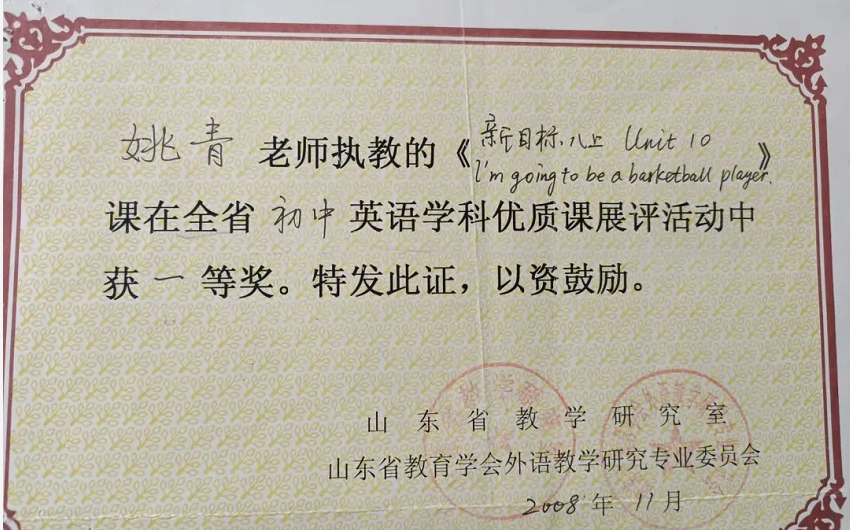 姚青 老师执教的《新目标八上 Unit 10
I'm going to be a basketball player.》
课在全省初中英语学科优质课展评活动中
获一等奖。特发此证，以资鼓励。
山东省教学研究室
山东省教育学会外语教学研究专业委员会
2008年11月